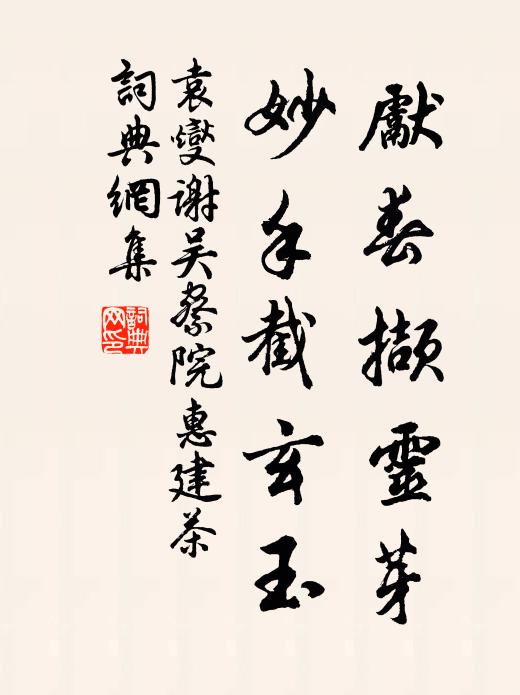 獻春擷靈芽
妙手截玄玉
袁燮谢吴察院惠建茶
詞典網集
詞典网印